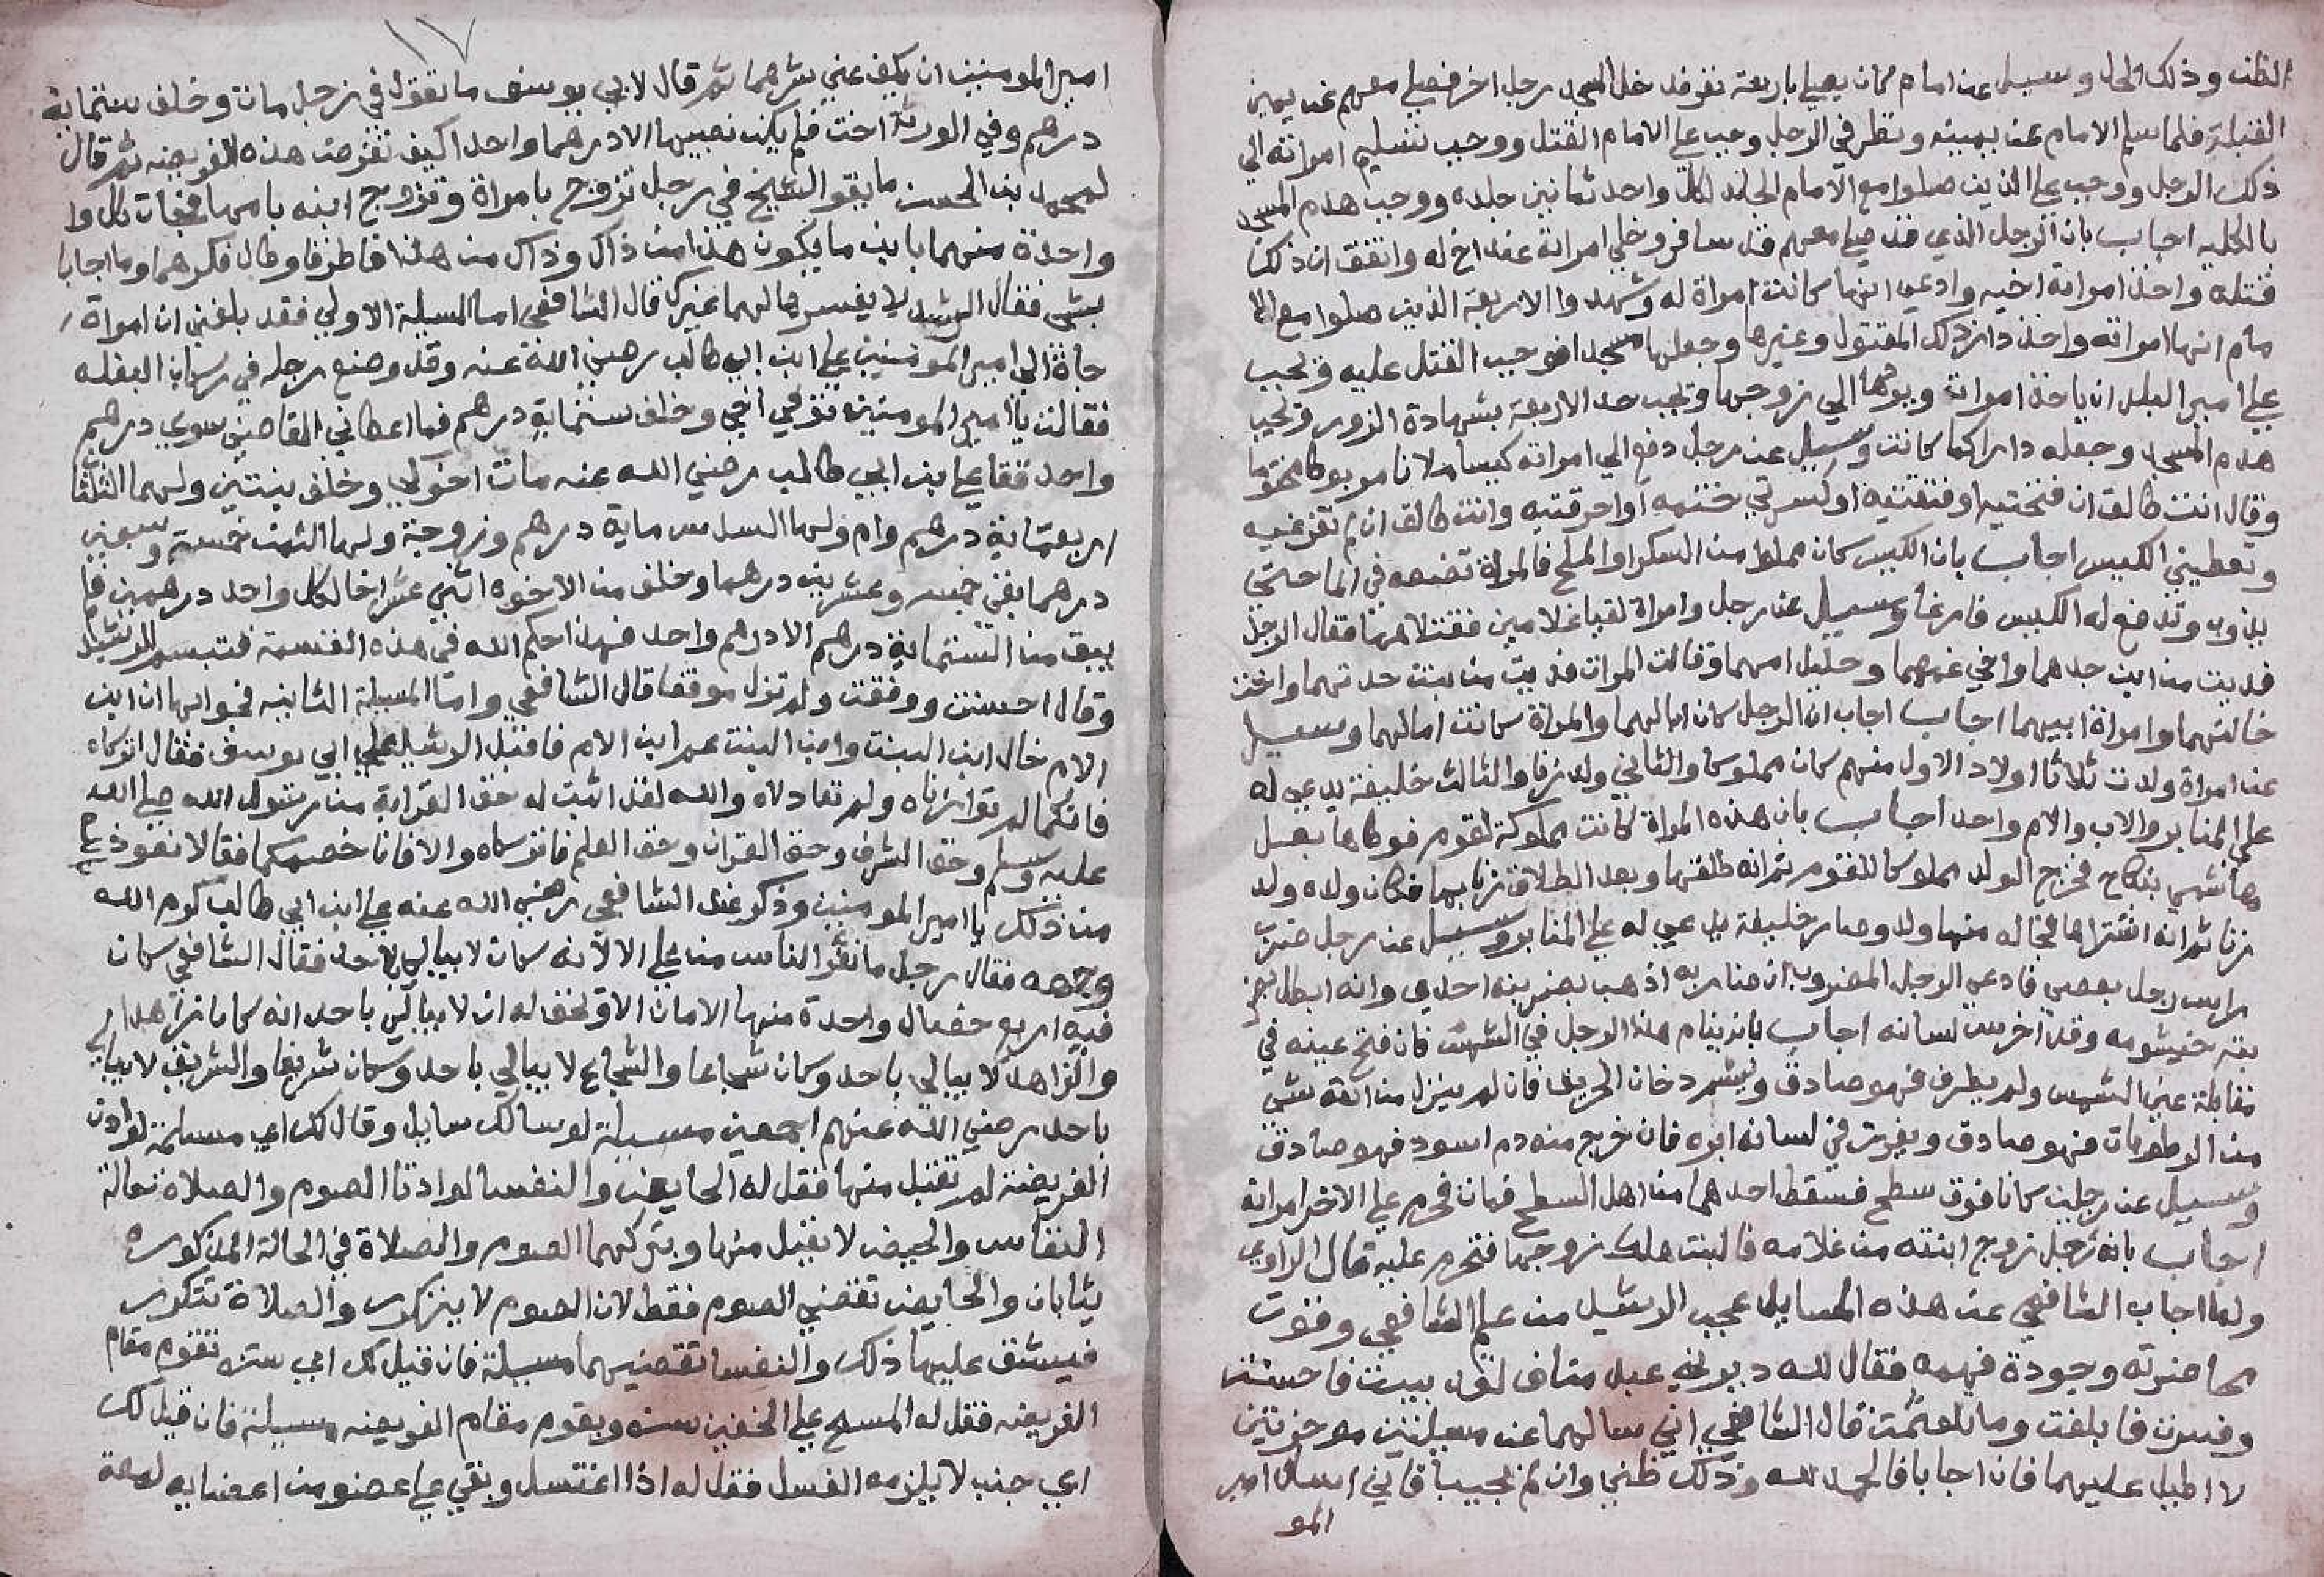 الظن وذلك الحل وسيل عن امام كان يصلي باربعة نفر فدخل المسجد رجل اخر فصلي معهم عن يمين
القبلة فلما سلم الامام عن يمينه ونظر في الرجل وجب علي الامام القتل ووجب تسليم امراته الي
ذلك الرجل ووجب علي الذين صلوا مع الامام الجلد لكل واحد ثمانين جلده ووجب هدم المسجد
بالكليه اجاب بان الرجل الذي قد صلي معهم قد سافر وخلي امراته عند اخ له واتفق ان ذلك
قتله واخذ امراة اخيه وادعي انها كانت امراة له وشهدوا الاربعة الذين صلوا مع الا
مام انها امراته واخذ دار ذلك المقتول وغيرها وجعلها مسجدا فوجب القتل عليه وتجب
علي امير البلد ان ياخذ امراته ويردها الي زوجها وتجب حد الاربعة بشهادة الزور وتجب
هدم المسجد وجعله دارا كما كانت وسيل عن رجل دفع الي امراته كيسا ملانا مربوطا مختوما
وقال انت طالق ان فتحتيه او فتقتيه او كسرتي ختمه او احرقتيه وانت طالق ان لم تفرغيه
وتعطيني الكيس اجاب بان الكيس كان مملوا من السكر او الملح فالمراة تضعه في الما حتي
يذوب وتدفع له الكيس فارغا وسيل عن رجل وامراة لقيا غلامين فقبلاهما فقال الرجل
فديت من ابن جدهما واخي عمهما وحليل امهما وقالت المراة فديت من بنت جدتهما واخت
خالتهما وامراة ابيهما اجاب اجاب ان الرجل كان ابا لهما والمراة كانت اما لهما وسيل
عن امراة ولدت ثلاثا اولاد الاول منهم كان مملوكا والثاني ولد زنا والثالث خليفة يدعي له
علي المنابر والاب والام واحد اجاب بان هذه المراة كانت مملوكة لقوم فوطاها بعبل
هاشمي بنكاح فخرج الولد مملوكا للقوم ثم انه طلقها وبعد الطلاق زنا بها فكان ولده ولد
زنا ثم انه اشتراها فجا له منها ولد وصار خليفة يدعي له علي المنابر وسيل عن رجل ضرب
راس رجل بعصي فادعي الرجل المضروب ان ضاربه اذهب بضربته احدي وانه ابطل بضر
بته خيشومه وقد اخرس لسانه اجاب بان ينام هذا الرجل في الشمس فان فتح عينه في
مقابلة عين الشمس ولم يطرف فهو صادق ويشم دخان الحريق فان لم ينزل من انفه شي
من الرطوبات فهو صادق ويغرز في لسانه ابره فان خرج منه دم اسود فهو صادق
وسيل عن رجلين كانا فوق سطح فسقط احدهما من اهل السطح فمات فحرم علي الاخر امراته
اجاب بانه رجل زوج ابنته من غلامه فالبنت هلك زوجها فتحرم عليه قال الراوي
ولما اجاب الشافعي عن هذه المسايل عجب الرشيد من علم الشافعي وقوت
محاضرته وجودة فهمه فقال لله در بني عبد مناف لقد بينت فاحسنت
وفسرت فابلغت وما تلعثمت قال الشافعي اني سالهما عن مسيلتين موجزتين
لا اطيل عليهما فان اجابا فالحمد لله وذلك ظني وان لم تجيبا فاني اسال امير
المو
١٧
امير المومنين ان يكف عني شرهما ثم قال لابي يوسف ما تقول في رجل مات وخلف ستماية
درهم وفي الورثه اخت فلم يكن نصيبها الا درهما واحدا كيف تفرض هذه الفريضه ثم قال
لمحمد بن الحسن ما يقوا الشيخ في رجل تزوج بامراة وتزوج ابنه بامها فجات كل وا
واحدة منهما بابن ما يكون هذا من ذاك وذاك من هذا فاطرفا وطال فكرهما وما اجابا
بشي فقال الرشيد لا يفسرها لهما غيرك قال الشافعي اما المسيلة الاولي فقد بلغني ان امراة
جاة الي امير المومنين علي ابن ابي طالب رضي الله عنه وقد وضع رجله في ركاب البغله
فقالت يا امير المومنين توفي اخي وخلف ستماية درهم فما اعطاني القاضي سوي درهم
واحد فقا علي بن ابي طالب رضي الله عنه مات اخوكي وخلف بنتين ولهما الثلثا
اربعماية درهم وام ولها السدس ماية درهم وزوجة ولها الثمن خمسة وسبعين
درهما بقي خمسه وعشرين درهما وخلف من الاخوه اثني عشر اخا لكل واحد درهمين فلم
يبق من الستماية درهم الا درهم واحد فهذا حكم الله في هذه القسمة فتبسم الرشيد
وقال احسنت ووفقت ولم تزل موفقا قال الشافعي واما المسيلة الثانيه فجوابها ان ابن
الام خال ابن البنت وابن البنت عم ابن الام فاقبل الرشيد علي ابي يوسف فقال اتركاه
فانكما لم توازناه ولم تعادلاه والله لقد اثبت له حق القرابة من رسول الله صلي الله
عليه وسلم وحق الشرف وحق القران وحق العلم فاتركاه والا فانا خصمكما فقالا نعوذ بالله
من ذلك يا امير المومنين وذكر عند الشافعي رضي الله عنه علي ابن ابي طالب كرم الله
وجهه فقال رجل ما نفر الناس من علي الا لانه كان لا يبالي باحد فقال الشافعي كان
فيه اربع خصال واحدة منها الامان الا وتحق له ان لا يبالي باحد انه كان زاهدا
والزاهد لا يبالي باحد وكان شجاعا والشجاع لا يبالي باحد وكان شريفا والشريف لا يبالي
باحد رضي الله عنهم اجمعين مسيلة لو سالك سايل وقال لك اي مسلمة لو ادت
الفريضة لم تقبل منها فقل له الحايض والنفسا لو ادتا الصوم والصلاة حالة
النفاس والحيض لا يقبل منها وبتركهما الصوم والصلاة في الحالة المذكوره
يثابان والحايض تقضي الصوم فقط لان الصوم لا يتكرر والصلاة تتكرر
فيشق عليها ذلك والنفسا تقضيهما مسيلة فان قيل لك اي سنه تقوم مقام
الفريضه فقل له المسح علي الخفين سنه ويقوم مقام الفريضه مسيلة فان قيل لك
اي جنب لا يلزمه الغسل فقل له اذا اغتسل وبقي علي عضو من اعضايه لمعة